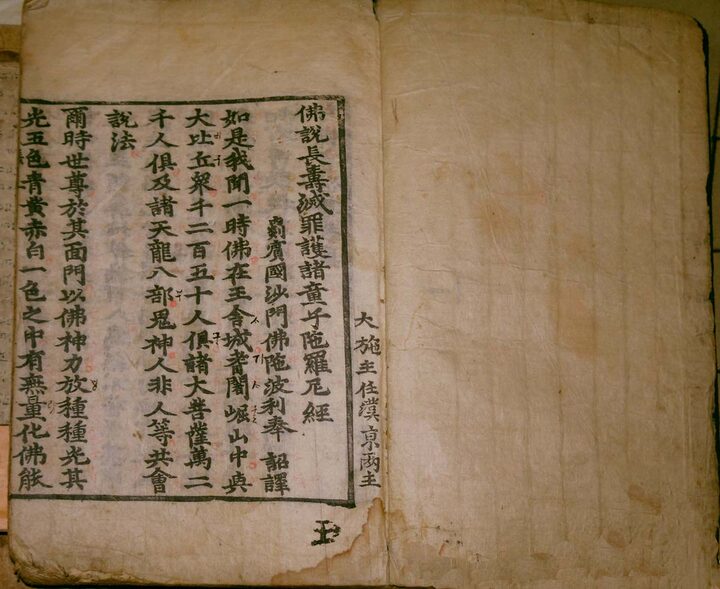 大施主任漢京兩主
佛說長壽滅罪護諸童子陁羅尼經
罽賓國沙門佛陁波利奉 詔譯
如是我聞一時佛在王舍城耆闍崛山中與
大比丘衆千二百五十人俱諸大菩薩萬二
千人俱及諸天龍八部鬼神人非人等共會
說法
爾時世尊於其面門以佛神力放種種光其
光五色青黃赤白一色之中有無量化佛能